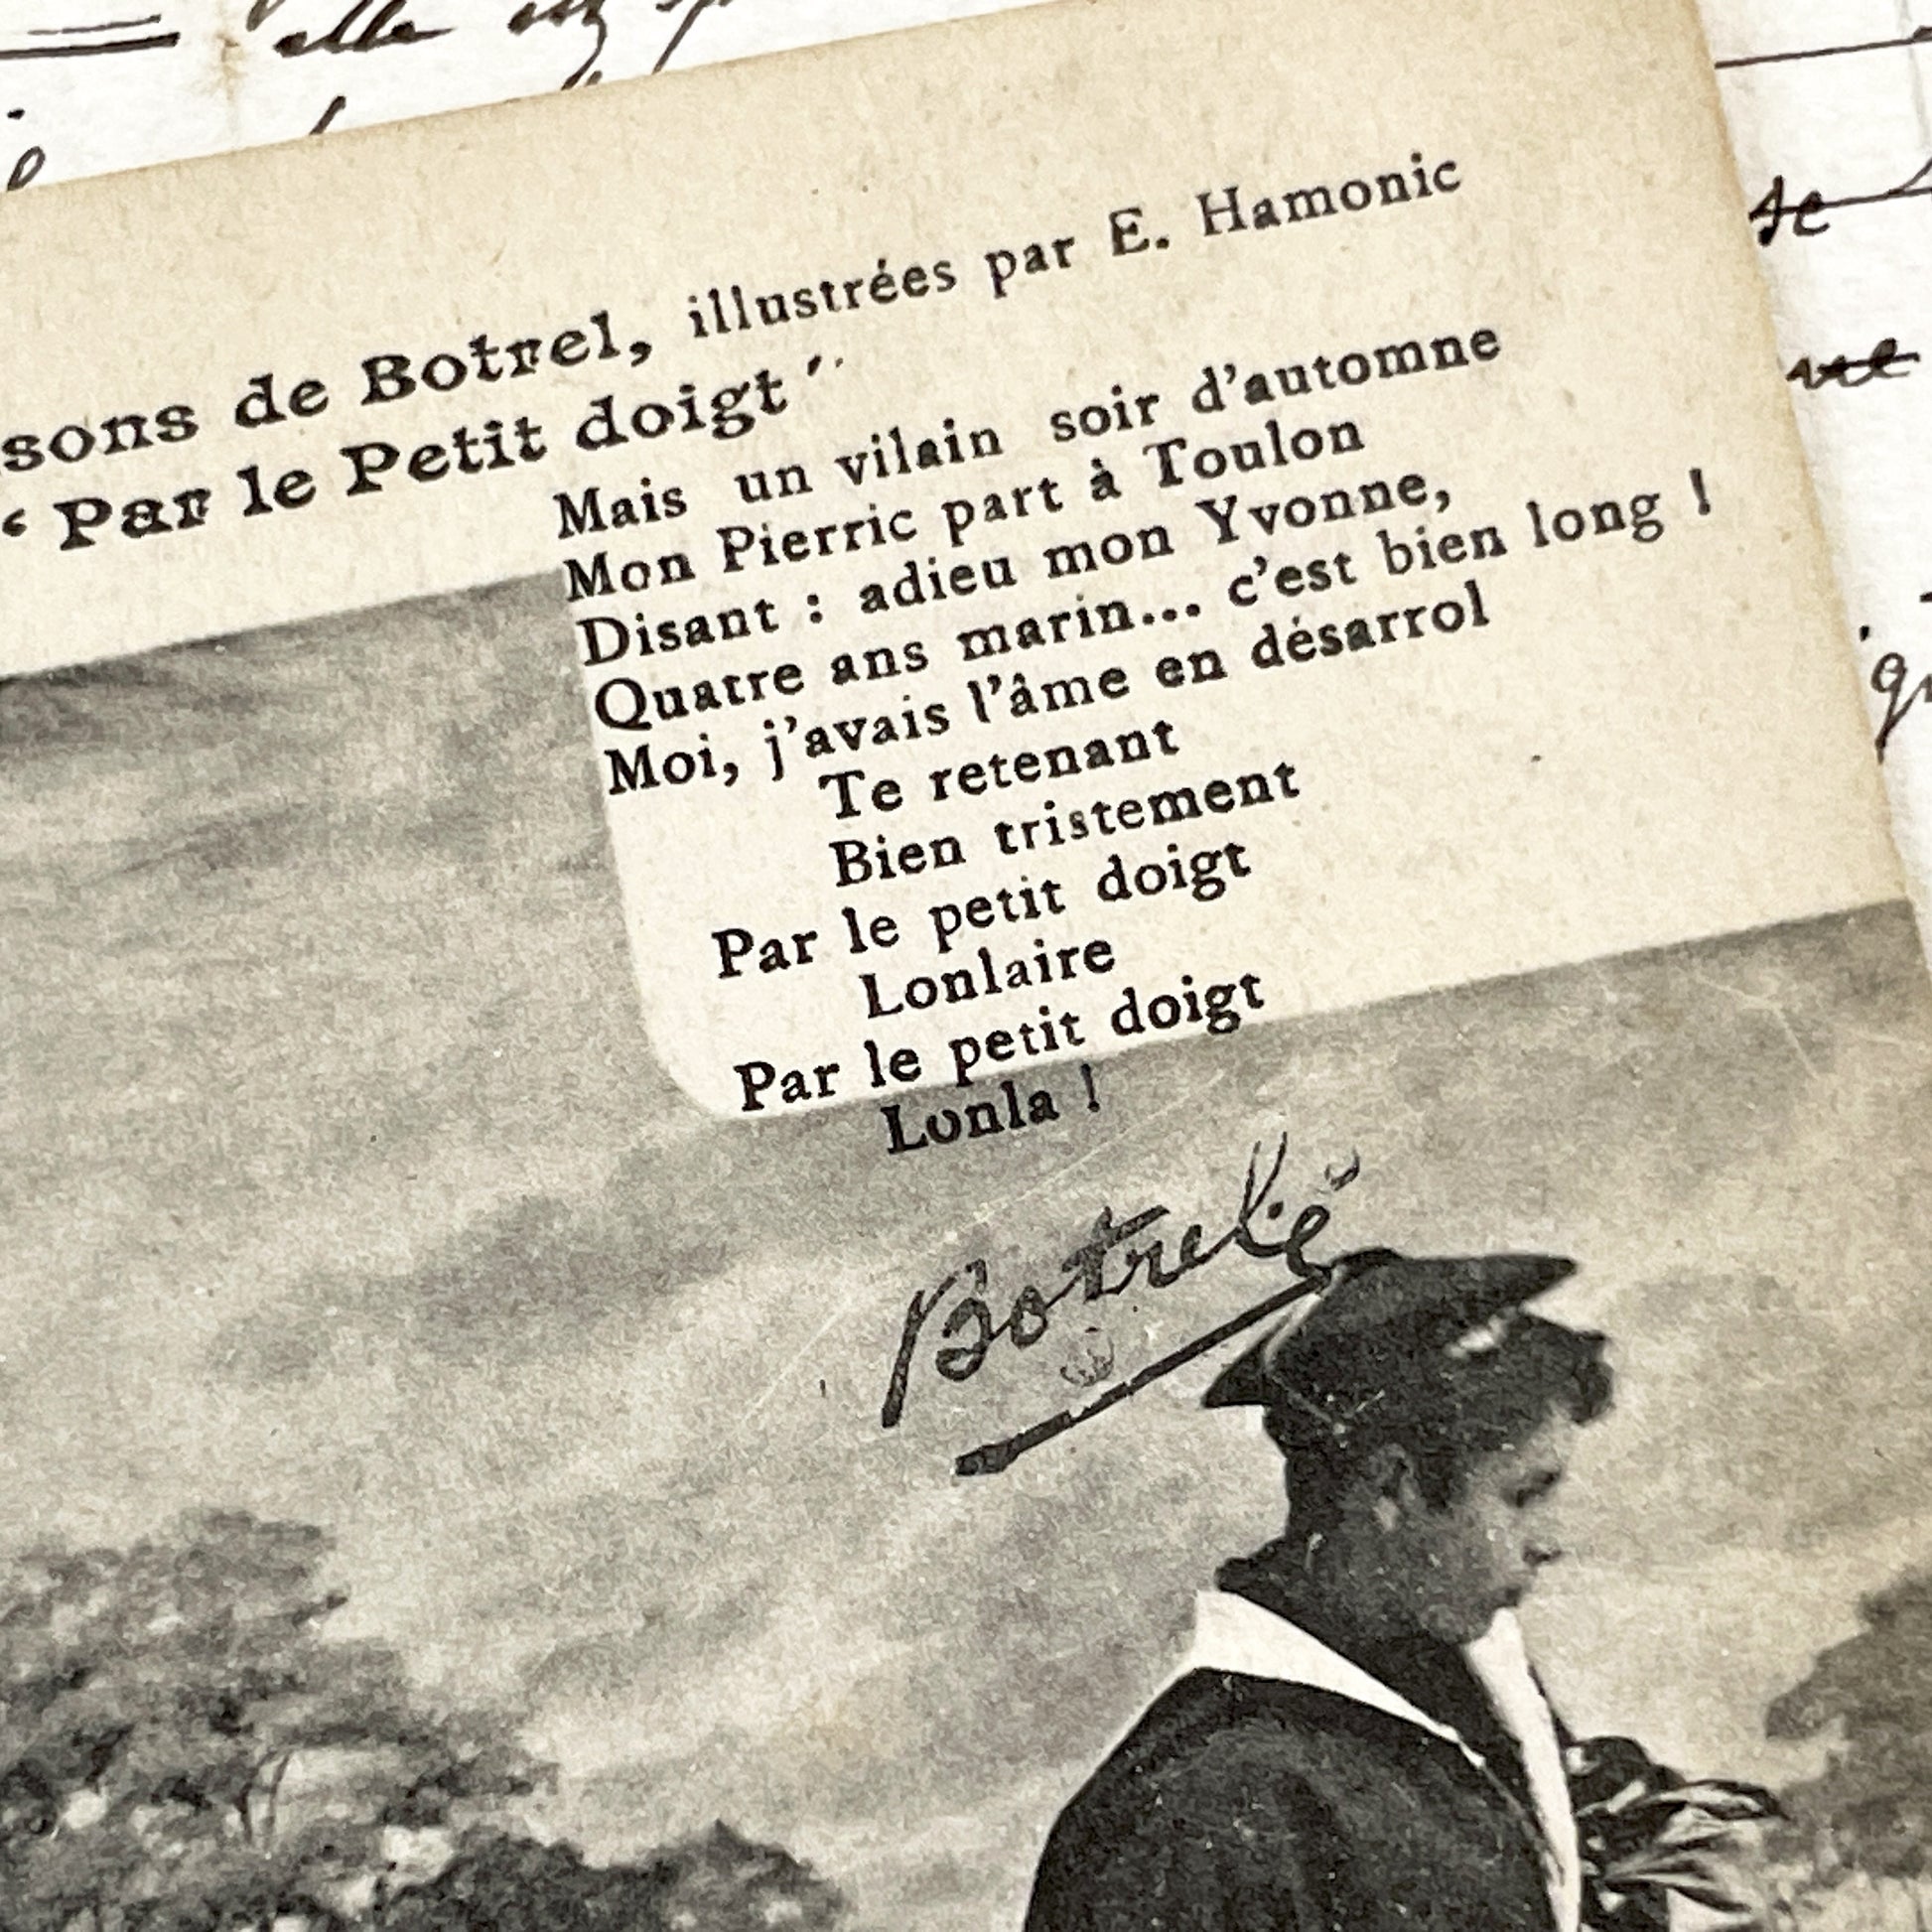 elle
sons de Botrel, illustrées par E. Hamonic
“ Par le Petit doigt ”
Mais un vilain soir d'automne
Mon Pierric part à Toulon
Disant : adieu mon Yvonne,
Quatre ans marin... c'est bien long !
Moi, j'avais l'âme en désarrol
Te retenant
Bien tristement
Par le petit doigt
Lonlaire
Par le petit doigt
Lonla !
Botrel